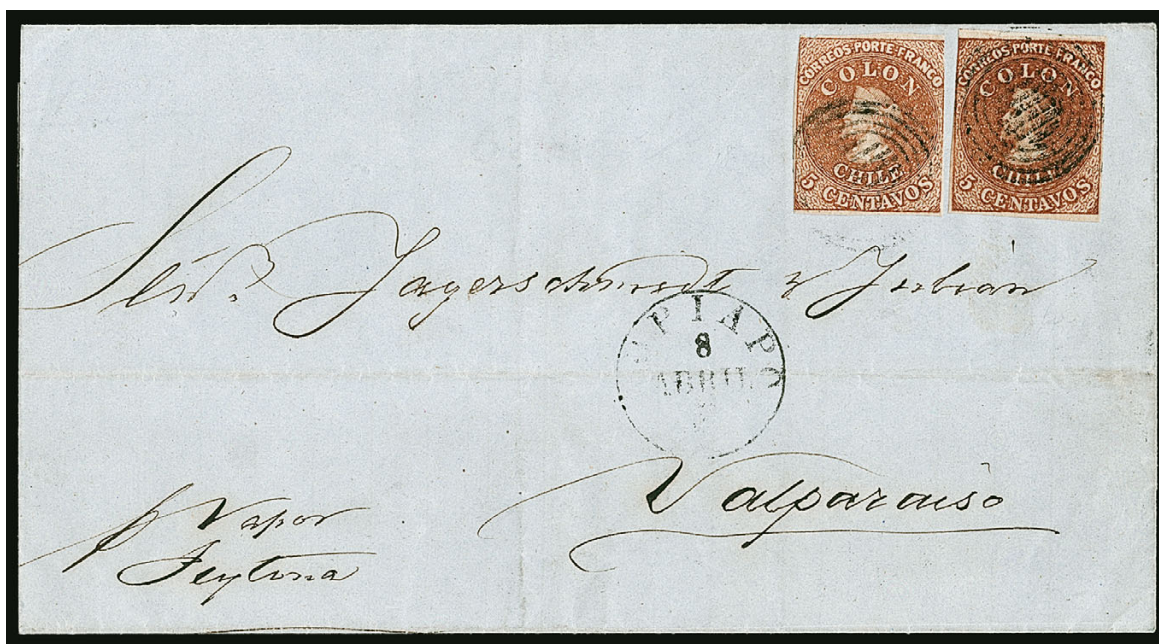 CORREOS·PORTE·FRANCO
COLON
CHILE
5 CENTAVOS
CORREOS·PORTE·FRANCO
COLON
CHILE
5 CENTAVOS
Jagerschmidt y
OPIAPO
8
ABRIL
Valparaiso
p Vapor